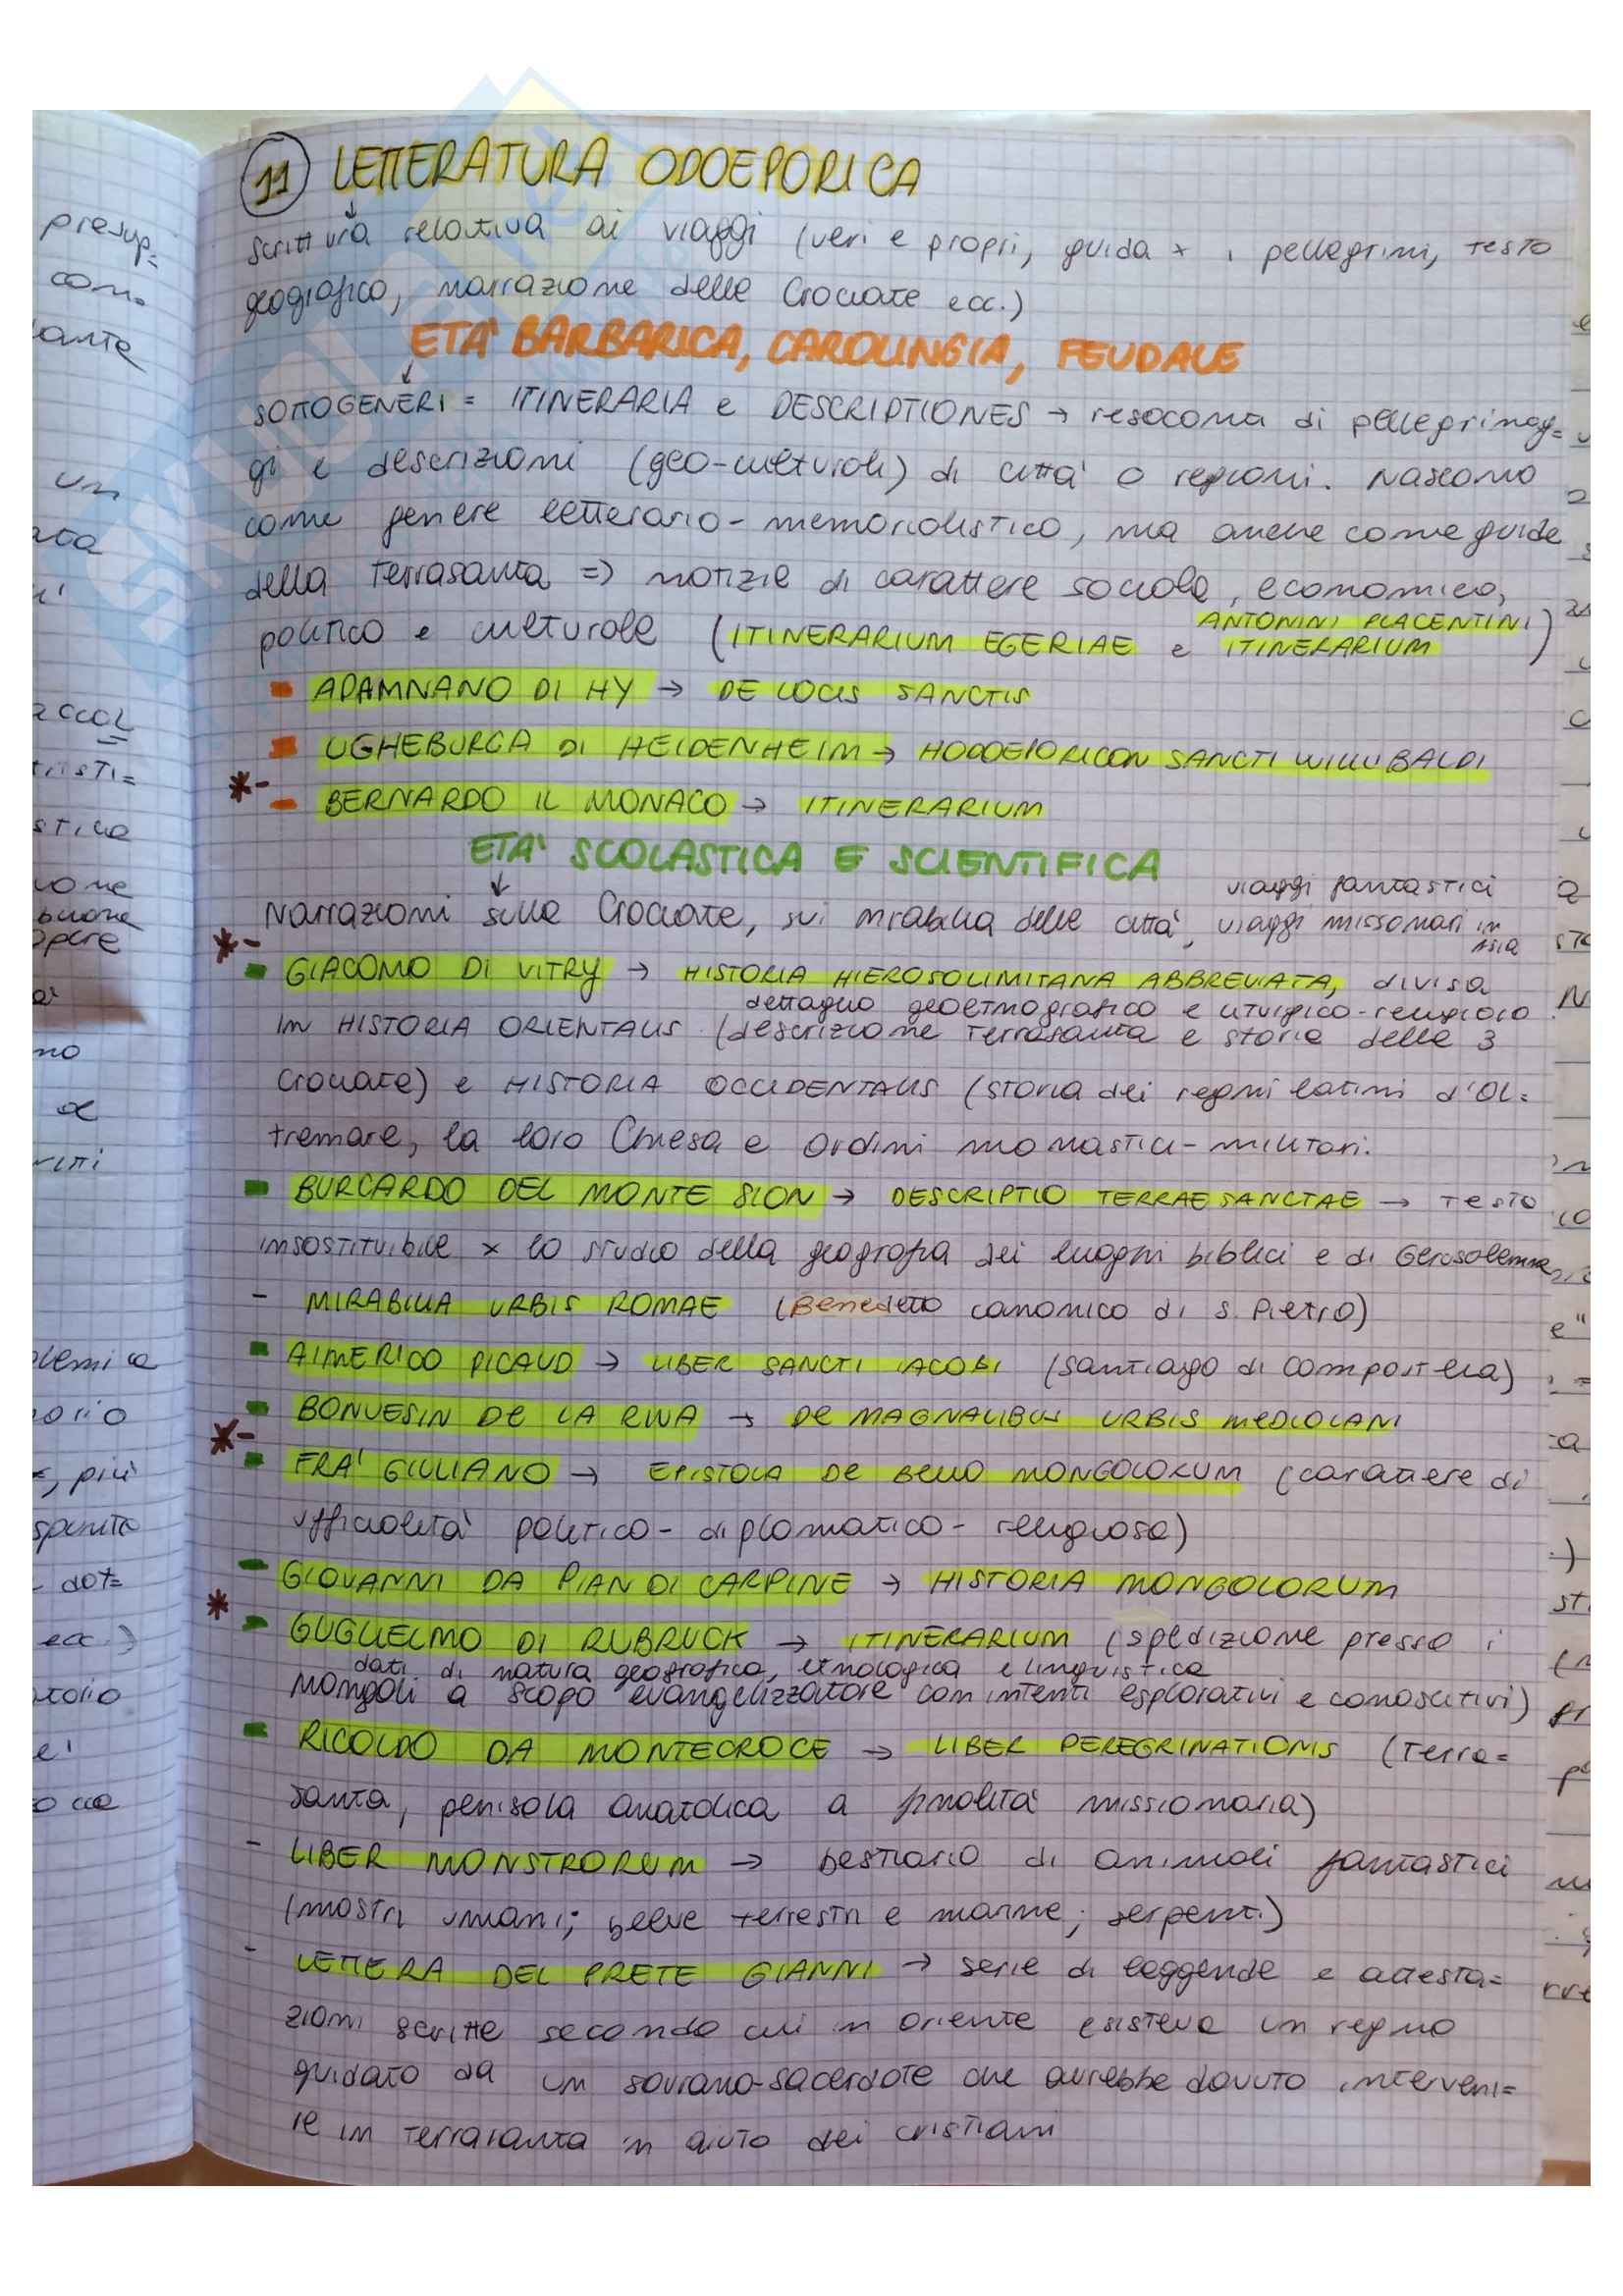 presup=
com=
un
accol
tristi=
stica
buone
opere
no
è
riti
più
dot=
ecc.)
11 LETTERATURA ODOEPORICA
↓
scrittura relativa ai viaggi (veri e propri, guida x i pellegrini, testo
geografico, narrazione delle Crociate ecc.)
ETA' BARBARICA, CAROLINGIA, FEUDALE
↓
SOTTOGENERI = ITINERARIA e DESCRIPTIONES → resoconti di pellegrinag=
gi e descrizioni (geo-culturali) di città o regioni. Nascono
come genere letterario-memorialistico, ma anche come guide
della Terrasanta => notizie di carattere sociale, economico,
ANTONINI PLACENTINI
politico e culturale (ITINERARIUM EGERIAE e ITINERARIUM)
- ADAMNANO DI HY → DE LOCIS SANCTIS
- UGHEBURGA DI HEIDENHEIM → HODOEPORICON SANCTI WILLIBALDI
*-
- BERNARDO IL MONACO → ITINERARIUM
ETA' SCOLASTICA E SCIENTIFICA
↓
viaggi fantastici
Narrazioni sulle Crociate, sui mirabilia delle città, viaggi missionari in Asia
*-
- GIACOMO DI VITRY → HISTORIA HIEROSOLIMITANA ABBREVIATA, divisa
dettaglio geoetnografico e liturgico-religioso
in HISTORIA ORIENTALIS (descrizione Terrasanta e storie delle 3
Crociate) e HISTORIA OCCIDENTALIS (storia dei regni latini d'Ol=
tremare, la loro Chiesa e ordini monastici-militari.
- BURCARDO DEL MONTE SION → DESCRIPTIO TERRAE SANCTAE → testo
insostituibile x lo studio della geografia dei luoghi biblici e di Gerusalemme
- MIRABILIA URBIS ROMAE (Benedetto canonico di S. Pietro)
- AIMERICO PICAUD → LIBER SANCTI IACOBI (Santiago di Compostela)
- BONVESIN DE LA RIVA → DE MAGNALIBUS URBIS MEDIOLANI
*-
- FRA' GIULIANO → EPISTOLA DE BELLO MONGOLORUM (carattere di
ufficialità politico-diplomatico-religiosa)
- GIOVANNI DA PIAN DI CARPINE → HISTORIA MONGOLORUM
*
- GUGLIELMO DI RUBRUCK → ITINERARIUM (spedizione presso i
dati di natura geografica, etnologica e linguistica
Mongoli a scopo evangelizzatore con intenti esplorativi e conoscitivi)
- RICOLDO DA MONTECROCE → LIBER PEREGRINATIONIS (Terra=
santa, penisola anatolica a finalità missionaria)
- LIBER MONSTRORUM → bestiario di animali fantastici
(mostri umani; belve terrestri e marine; serpenti)
- LETTERA DEL PRETE GIANNI → serie di leggende e attesta=
zioni scritte secondo cui in oriente esisteva un regno
guidato da un sovrano-sacerdote che avrebbe dovuto interveni=
re in Terrasanta in aiuto dei cristiani